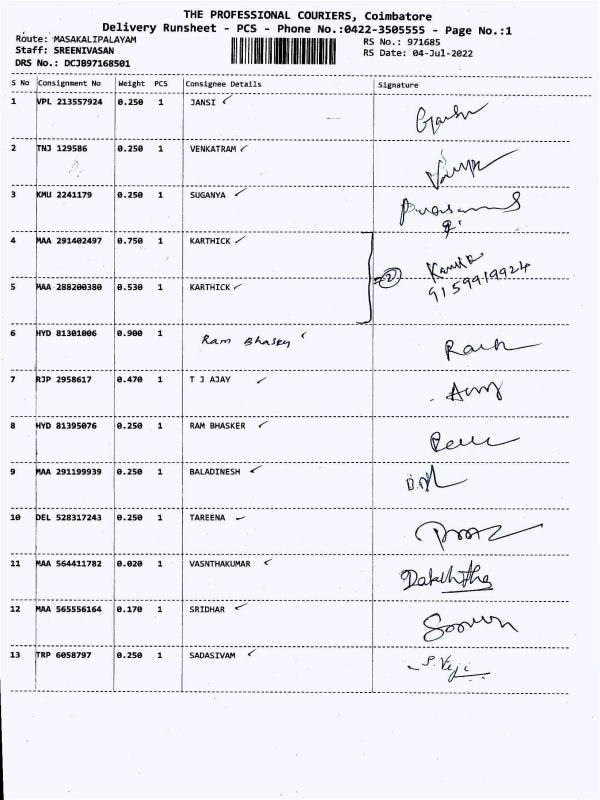 THE PROFESSIONAL COURIERS, Coimbatore
Delivery Runsheet - PCS - Phone No.:0422-3505555 - Page No.:1
Route: MASAKALIPALAYAM
RS No.: 971685
Staff: SREENIVASAN
RS Date: 04-Jul-2022
DRS No.: DCJB97168501
S No Consignment No Weight PCS Consignee Details Signature
1 VPL 213557924 0.250 1 JANSI
2 TNJ 129586 0.250 1 VENKATRAM
3 KMU 2241179 0.250 1 SUGANYA
4 MAA 291402497 0.750 1 KARTHICK
9159919924
5 MAA 288200380 0.530 1 KARTHICK
6 HYD 81301006 0.900 1 Ram Bhasky
7 RJP 2958617 0.470 1 T J AJAY
8 HYD 81395076 0.250 1 RAM BHASKER
9 MAA 291199939 0.250 1 BALADINESH
10 DEL 528317243 0.250 1 TAREENA
11 MAA 564411782 0.020 1 VASNTHAKUMAR
12 MAA 565556164 0.170 1 SRIDHAR
13 TRP 6058797 0.250 1 SADASIVAM